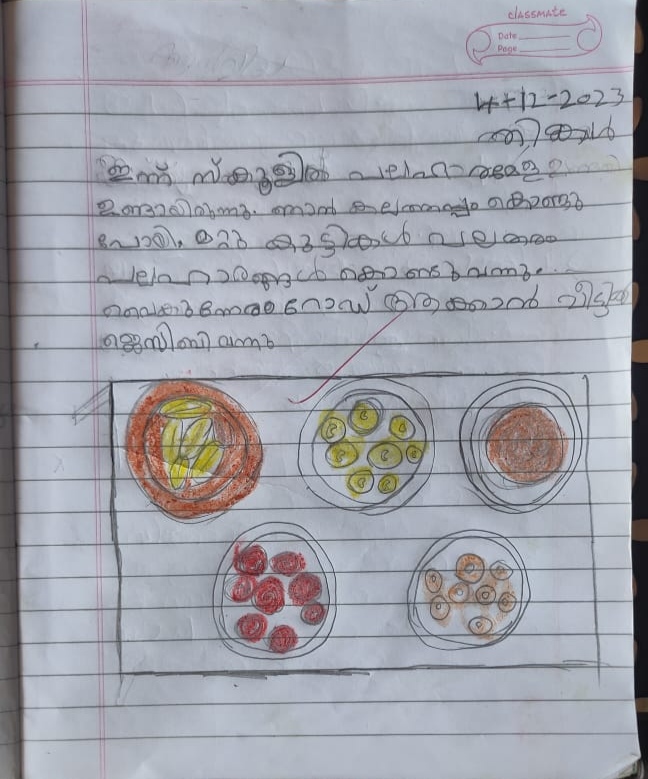 classmate
Date
Page
4-12-2023
തിങ്കൾ
ഇന്ന് സ്കൂളിൽ പലഹാരമേള
ഉണ്ടായിരുന്നു. ഞാൻ കലത്തപ്പം കൊണ്ടു
പോയി. മറ്റു കുട്ടികൾ പലതരം
പലഹാരങ്ങൾ കൊണ്ടുവന്നു.
വൈകുന്നേരം റോഡ് വീട്ടിൽ
ജെസിബി വന്നു